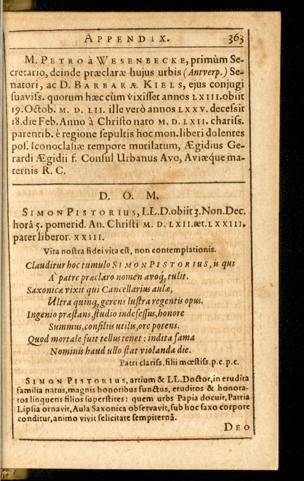 APPENDIX. 363
M. PETRO à WESENBECKE, primùm Se-
cretario, deinde præclaræ hujus urbis (Antverp.) Se-
natori, ac D. BARBARÆ KIELS, ejus conjugi
suaviss. quorum hæc cùm vixisset annos LXIII. obiit
19. Octob. M. D. LII. ille verò annos LXXV. decessit
18. die Feb. Anno à Christo nato M. D. LXII. chariss.
parentib. è regione sepultis hoc mon. liberi dolentes
pos. Iconoclaliæ tempore mutilatum, Ægidius Ge-
rardi Ægidii f. Consul Urbanus Avo, Aviæque ma-
ternis R. C.
D. O. M.
SIMON PISTORIUS, LL. D. obiit 3. Non. Dec.
horâ 5. pomerid. An. Christi M. D. LXII. æt. LXXIII,
pater liberor. XXIII.
Vita nostra fidei vita est, non contemplationis.
Clauditur hoc tumulo SIMON PISTORIUS, is qui
A' patre præclaro nomen avoq́; tulit.
Saxonicæ vixit qui Cancellarius aulæ,
Ultra quinq; gerens lustra regentis opus.
Ingenio præstans, studio indefessus, honore
Summus, consiliis utilis, ore potens.
Quod mortale fuit tellus tenet: indita fama
Nominis haud ullo stat violanda die.
Patri clariss. filii mœstiss. p. c. p. c.
SIMON PISTORIUS, artium & LL. Doctor, in erudita
familia natus, magnis honoribus functus, eruditos & honora-
tos linquens filios superstites: quem urbs Papia docuit, Patria
Lipsia ornavit, Aula Saxonica observavit, sub hoc saxo corpore
conditur, animo vivit felicitate sempiternâ.
DEO